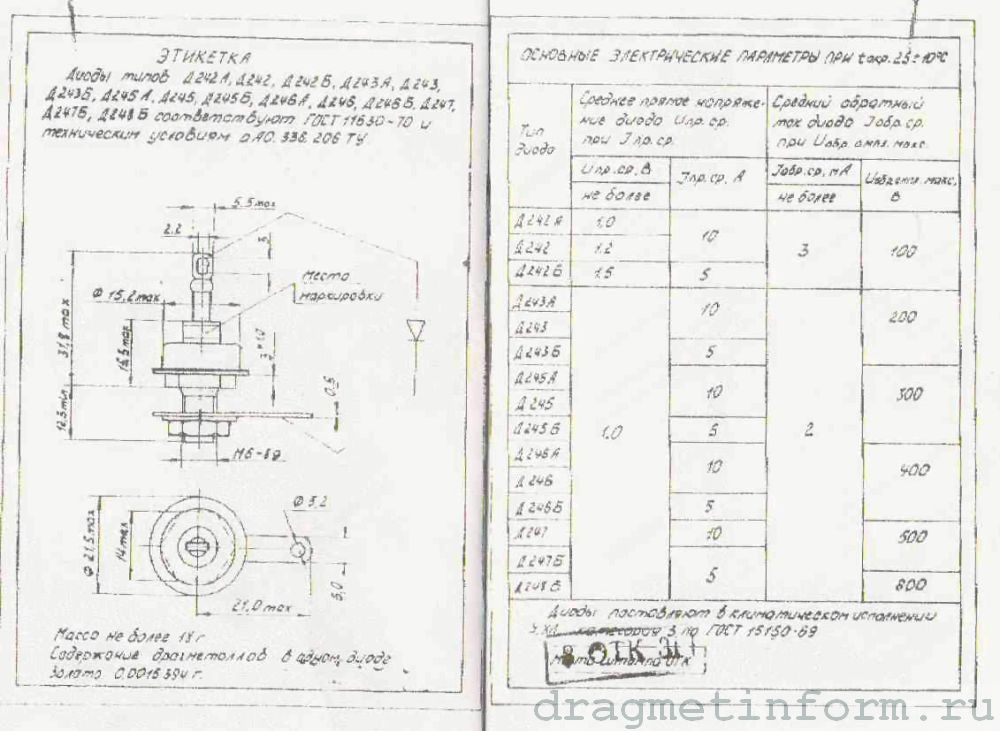 ЭТИКЕТКА
Диоды типов Д242А, Д242, Д242Б, Д243А, Д243,
Д243Б, Д245А, Д245, Д245Б, Д246А, Д246, Д246Б, Д247,
Д247Б, Д248Б соответствуют ГОСТ 11630-70 и
техническим условиям аАО. 336. 206 ТУ
5.5 max
2.2
3
Место
маркировки
Ф 15,2 max
31,8 max
12,5 min
0,5
М6-8g
Ф 3,2
Ф 21,5 max
14 max
6,0
21,0 max
Масса не более 18 г
Содержание драгметаллов в одном диоде
Золото 0,0015394 г.
ОСНОВНЫЕ ЭЛЕКТРИЧЕСКИЕ ПАРАМЕТРЫ ПРИ tокр. 25±10°C
Тип диода
Среднее прямое напряже-
ние диода Uпр.ср.
при Iпр.ср.
Средний обратный
ток диода Iобр.ср.
при Uобр.ампл.макс.
Uпр.ср. В
не более
Iпр.ср. А
Iобр.ср. мА
не более
Uобр.ампл.макс,
В
Д242А 1.0 10 3 100
Д242 1.2
Д242Б 1.5 5
Д243А 1.0 10 2 200
Д243
Д243Б 5
Д245А 10 300
Д245
Д245Б 5
Д246А 10 400
Д246
Д246Б 5
Д247 10 500
Д247Б 5
Д248Б 600
Диоды поставляют в климатическом исполнении
категория 3 по ГОСТ 15150-69
ОТК 31
Место штампа ОТК
dragmetinform.ru